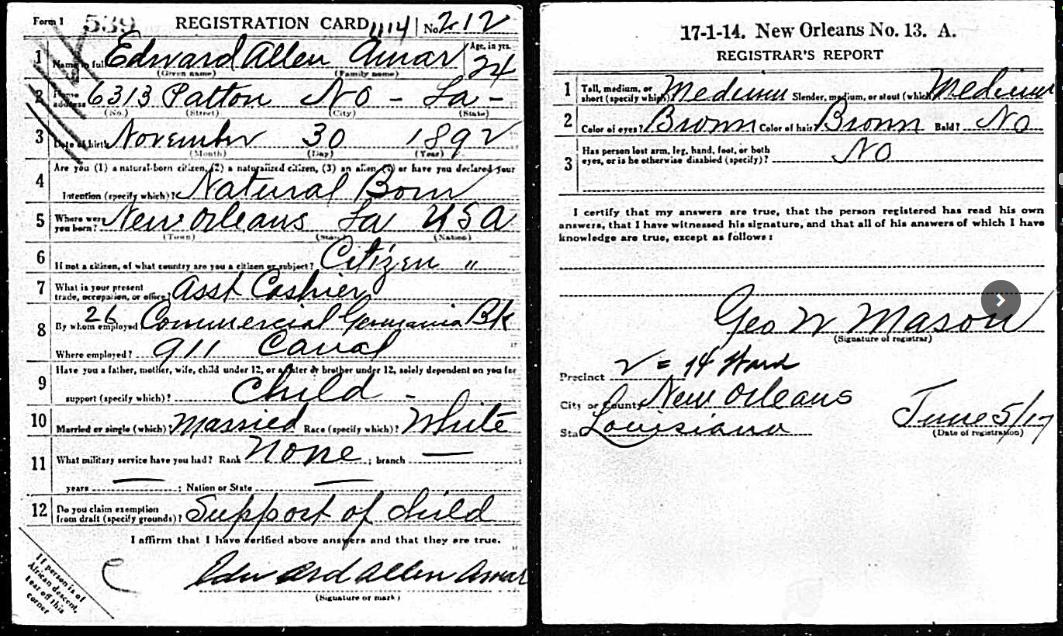 Form 1 539 REGISTRATION CARD 1114 No. 212
1 Name in full Edward Allen Amar Age, in yrs. 24
(Given name) (Family name)
2 Home address 6313 Patton NO - La -
(No.) (Street) (City) (State)
3 Date of birth November 30 1892
(Month) (Day) (Year)
4 Are you (1) a natural-born citizen, (2) a naturalized citizen, (3) an alien, (4) or have you declared your
intention (specify which)? Natural Born
5 Where were you born? New Orleans La USA
(Town) (State) (Nation)
6 If not a citizen, of what country are you a citizen or subject? Citizen "
7 What is your present trade, occupation, or office? Asst Cashier
26
8 By whom employed? Commercial Germania Bk
Where employed? 911 Canal
9 Have you a father, mother, wife, child under 12, or a sister or brother under 12, solely dependent on you for
support (specify which)? Child -
10 Married or single (which)? Married Race (specify which)? White
11 What military service have you had? Rank None ; branch —
years — ; Nation or State —
12 Do you claim exemption from draft (specify grounds)? Support of child
I affirm that I have verified above answers and that they are true.
Edward Allen Amar
(Signature or mark)
If person is of
African descent,
tear off this
corner
17-1-14. New Orleans No. 13. A.
REGISTRAR'S REPORT
1 Tall, medium, or short (specify which)? Medium Slender, medium, or stout (which)? Medium
2 Color of eyes? Brown Color of hair? Brown Bald? No
3 Has person lost arm, leg, hand, foot, or both eyes, or is he otherwise disabled (specify)? No
I certify that my answers are true, that the person registered has read his own
answers, that I have witnessed his signature, and that all of his answers of which I have
knowledge are true, except as follows:
Geo W Mason
(Signature of registrar)
Precinct 2 = 14 Ward
City or County New Orleans
State Louisiana June 5/17
(Date of registration)